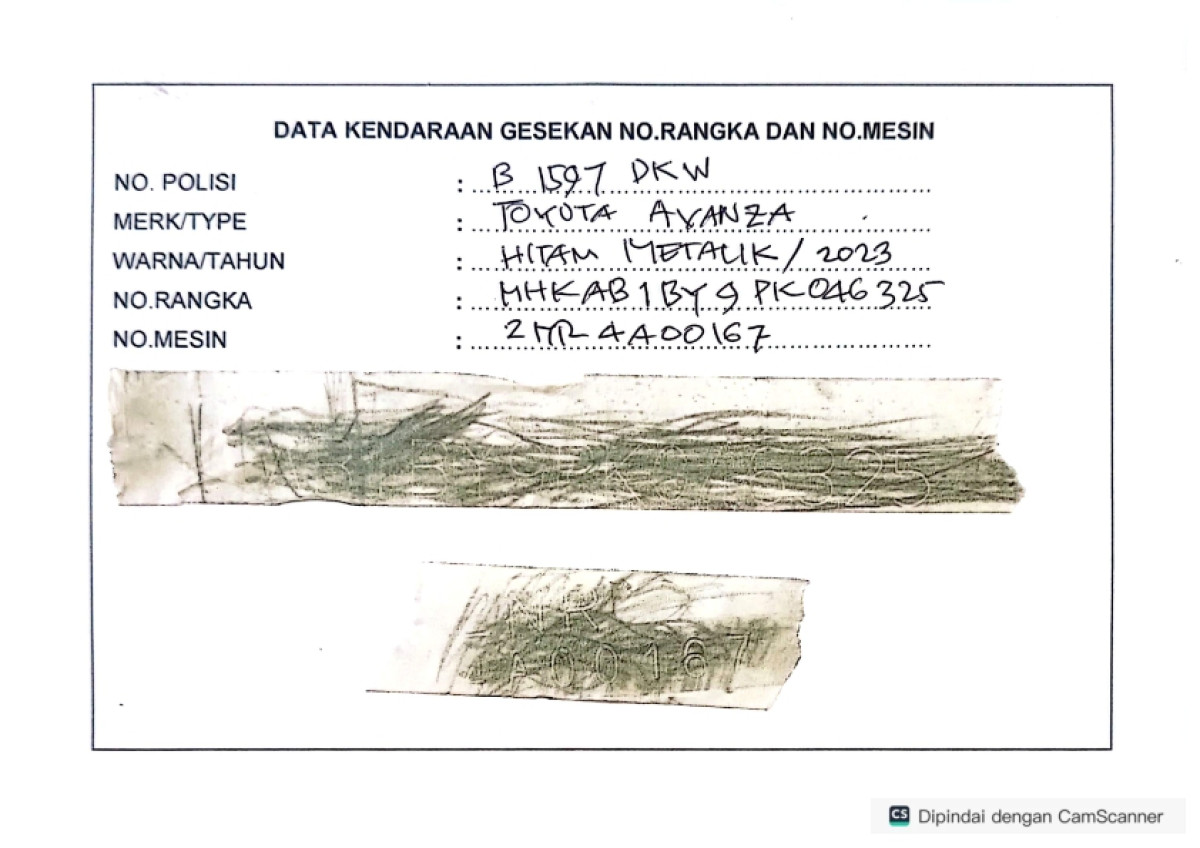 DATA KENDARAAN GESEKAN NO.RANGKA DAN NO.MESIN
NO. POLISI : B 1597 DKW
MERK/TYPE : TOYOTA AVANZA
WARNA/TAHUN : HITAM METALIK / 2023
NO.RANGKA : MHKAB1BY9PK046325
NO.MESIN : 2NR4A00167
6325
NR
A00167
CS Dipindai dengan CamScanner